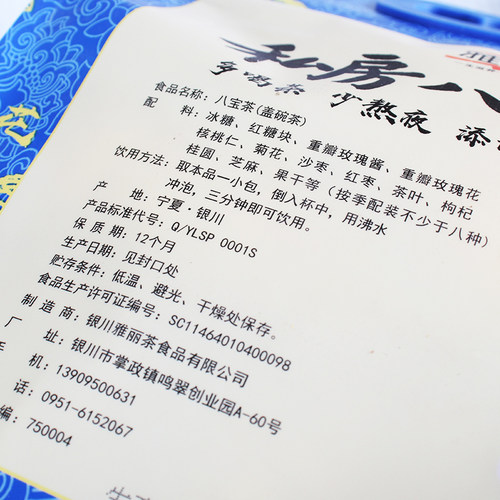 私房八
多喝茶 少熬夜 添
食品名称：八宝茶(盖碗茶)
配 料：冰糖、红糖块、重瓣玫瑰酱、重瓣玫瑰花
核桃仁、菊花、沙枣、红枣、茶叶、枸杞
桂圆、芝麻、果干等(按季配装不少于八种)
饮用方法：取本品一小包，倒入杯中，用沸水
冲泡，三分钟即可饮用。
产 地：宁夏·银川
产品标准代号：Q/YLSP 0001S
保 质 期：12个月
生产日期：见封口处
贮存条件：低温、避光、干燥处保存。
食品生产许可证编号：SC11464010400098
制 造 商：银川雅丽茶食品有限公司
厂 址：银川市掌政镇鸣翠创业园A-60号
手 机：13909500631
话：0951-6152067
编：750004